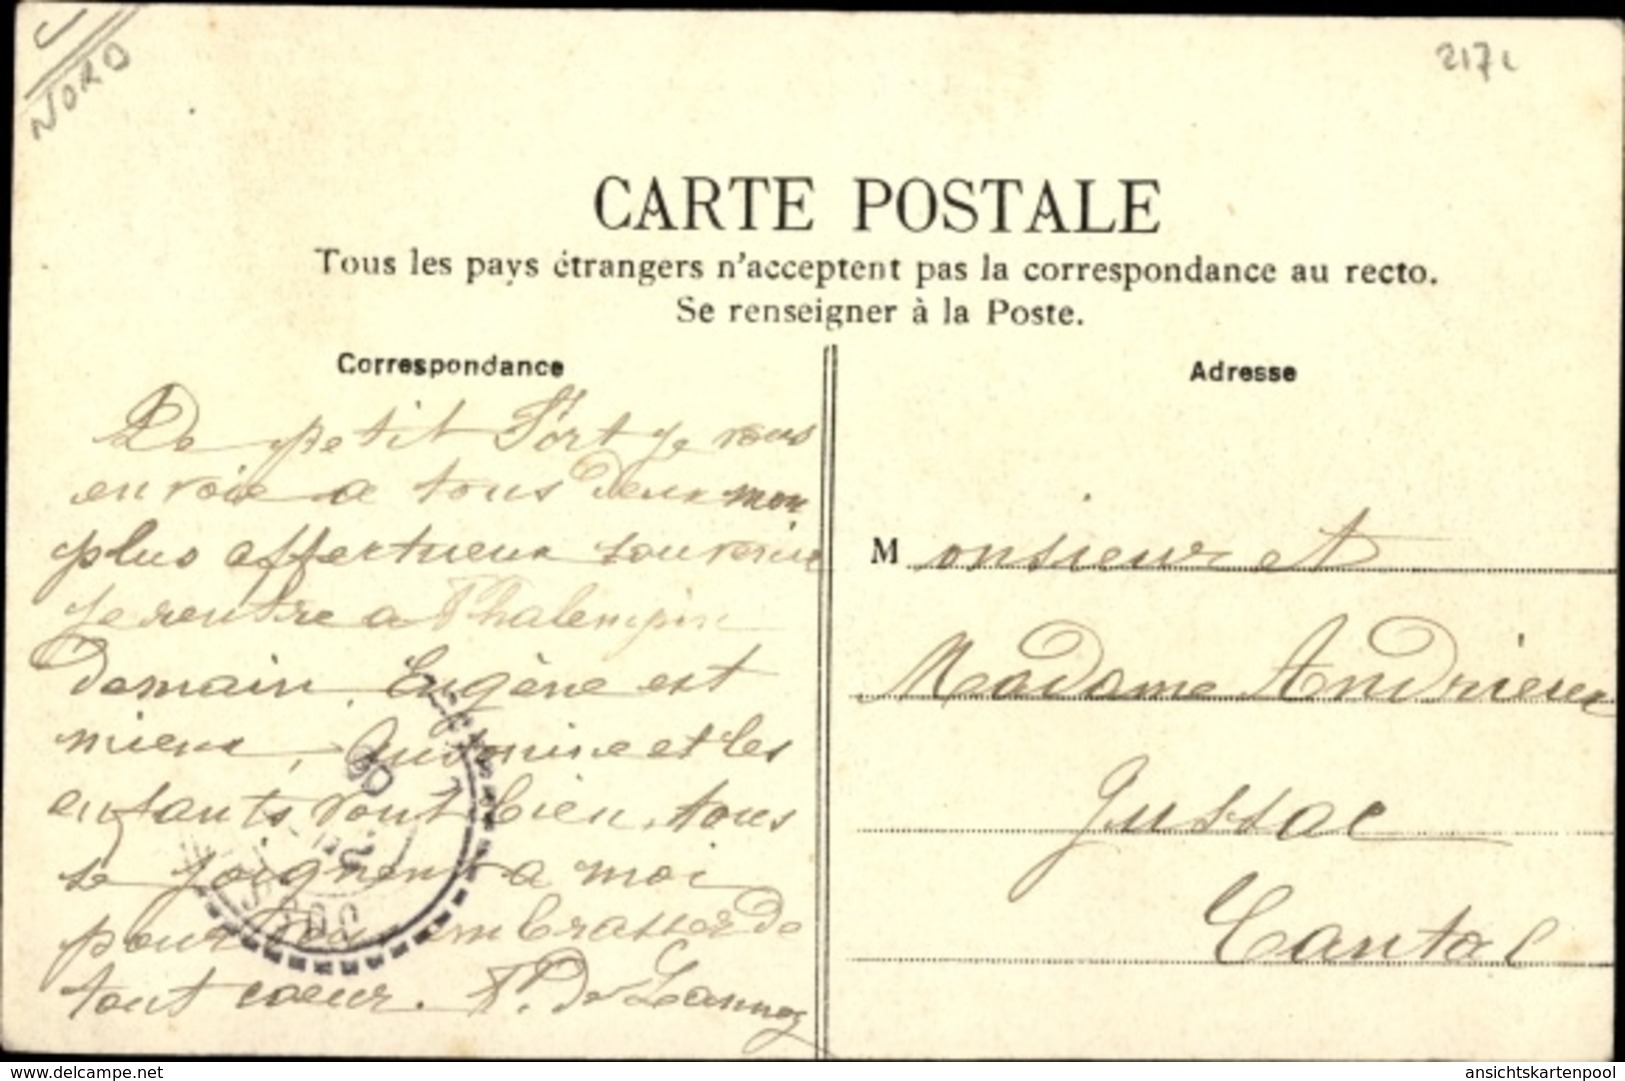 NORD
2171
CARTE POSTALE
Tous les pays étrangers n'acceptent pas la correspondance au recto.
Se renseigner à la Poste.
Correspondance
De petit Fort je vous
envoie a tous deux mon
plus affectueux souvenir
Je rentre a Phalempin
Demain, Eugène est
mieux, et les
enfants vont bien, tous
se joignent a moi
pour embrasser de
tout coeur. P. De Lannoy
Adresse
Monsieur et
Madame Andrieux
Jussac
Cantal
www.delcampe.net
ansichtskartenpool